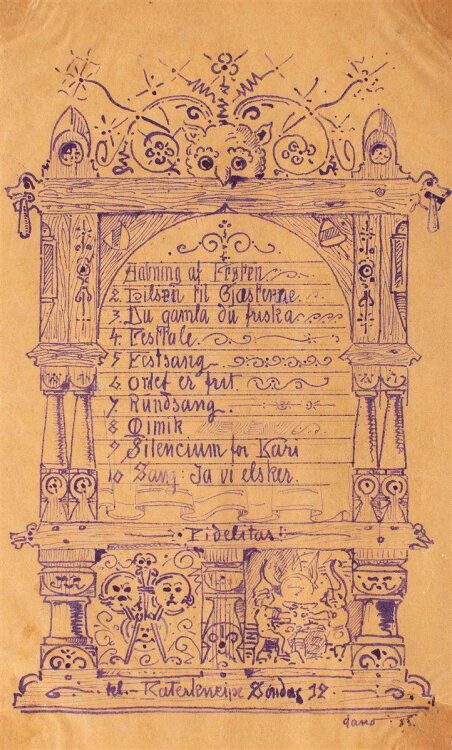 1 Aabning af Festen
2. Hilsen til Gjæsterne
3. Du gamla du friska
4 Festtale
5 Festsang
6 Ordet er frit
7. Rundsang.
8 Mimik
9 Silencium for Kari
10 Sang: Ja vi elsker.
Fidelitas!
kl. Katerkneipe Søndag 12